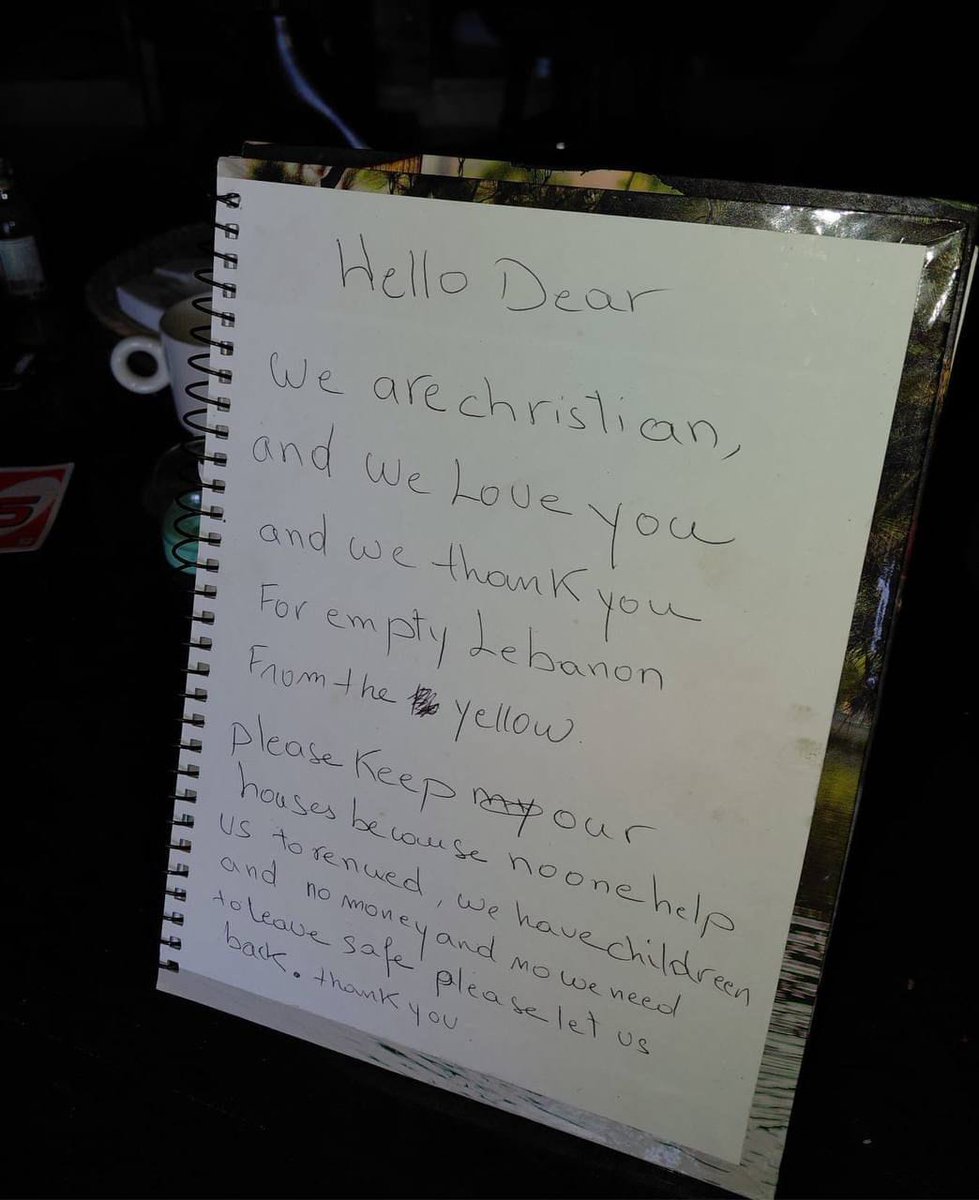 Hello Dear
We are christian,
and we Love you
and we thank you
For empty Lebanon
From the yellow.
please Keep my our
houses becouse no one help
us to renwed, we have childreen
and no money and mo we need
to leave safe please let us
back. thank you
S